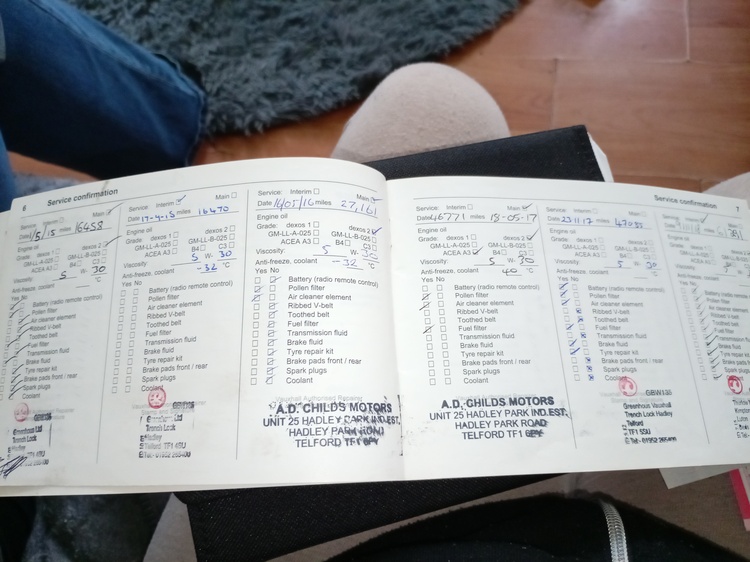 6
Service confirmation
Service: Interim Main
Date 1/5/15 miles 16458
Engine oil
dexos 2
GM-LL-A-025 GM-LL-B-025
ACEA A3 B4 C3
Viscosity: 5 W- 30
Anti-freeze, coolant °C
Yes No
Battery (radio remote control)
Pollen filter
Air cleaner element
Ribbed V-belt
Toothed belt
Fuel filter
Transmission fluid
Brake fluid
Tyre repair kit
Brake pads front / rear
Spark plugs
Coolant
Trench Lock
Service: Interim Main
Date 17-4-15 miles 16470
Engine oil
Grade: dexos 1 dexos 2
GM-LL-A-025 GM-LL-B-025
ACEA A3 B4 C3
Viscosity: 5 W- 30
Anti-freeze, coolant -32 °C
Yes No
Battery (radio remote control)
Pollen filter
Air cleaner element
Ribbed V-belt
Toothed belt
Fuel filter
Transmission fluid
Brake fluid
Tyre repair kit
Brake pads front / rear
Spark plugs
Coolant
Trench Lock
Hadley
Telford TF1
Tel:- 01952
Service: Interim Main
Date 16/05/16 miles 27,161
Engine oil
Grade: dexos 1 dexos 2
GM-LL-A-025 GM-LL-B-025
ACEA A3 B4 C3
Viscosity: 5 W- 30
Anti-freeze, coolant -32 °C
Yes No
Battery (radio remote control)
Pollen filter
Air cleaner element
Ribbed V-belt
Toothed belt
Fuel filter
Transmission fluid
Brake fluid
Tyre repair kit
Brake pads front / rear
Spark plugs
Coolant
A.D. CHILDS MOTORS
UNIT 25 HADLEY PARK IND.EST.
HADLEY PARK ROAD
TELFORD TF1 6PY
Service confirmation
7
Service: Interim Main
Date 46771 miles 18-05-17
Engine oil
Grade: dexos 1 dexos 2
GM-LL-A-025 GM-LL-B-025
ACEA A3 B4 C3
Viscosity: 5 W- 30
Anti-freeze, coolant 40 °C
Yes No
Battery (radio remote control)
Pollen filter
Air cleaner element
Ribbed V-belt
Toothed belt
Fuel filter
Transmission fluid
Brake fluid
Tyre repair kit
Brake pads front / rear
Spark plugs
Coolant
A.D. CHILDS MOTORS
UNIT 25 HADLEY PARK IND.EST.
HADLEY PARK ROAD
TELFORD TF1 6PY
Service: Interim Main
Date 23.11.17 miles
Engine oil
Grade: dexos 1 dexos 2
GM-LL-A-025 GM-LL-B-025
ACEA A3 B4 C3
Viscosity: 5 W- 30
Anti-freeze, coolant °C
Yes No
Battery (radio remote control)
Pollen filter
Air cleaner element
Ribbed V-belt
Toothed belt
Fuel filter
Transmission fluid
Brake fluid
Tyre repair kit
Brake pads front / rear
Spark plugs
Coolant
Greenhous Vauxhall
Trench Lock Hadley
Telford
TF1 5SU
Tel:- 01952
Engine oil
Grade:
Viscosity:
Anti-freeze, coolant
Yes No